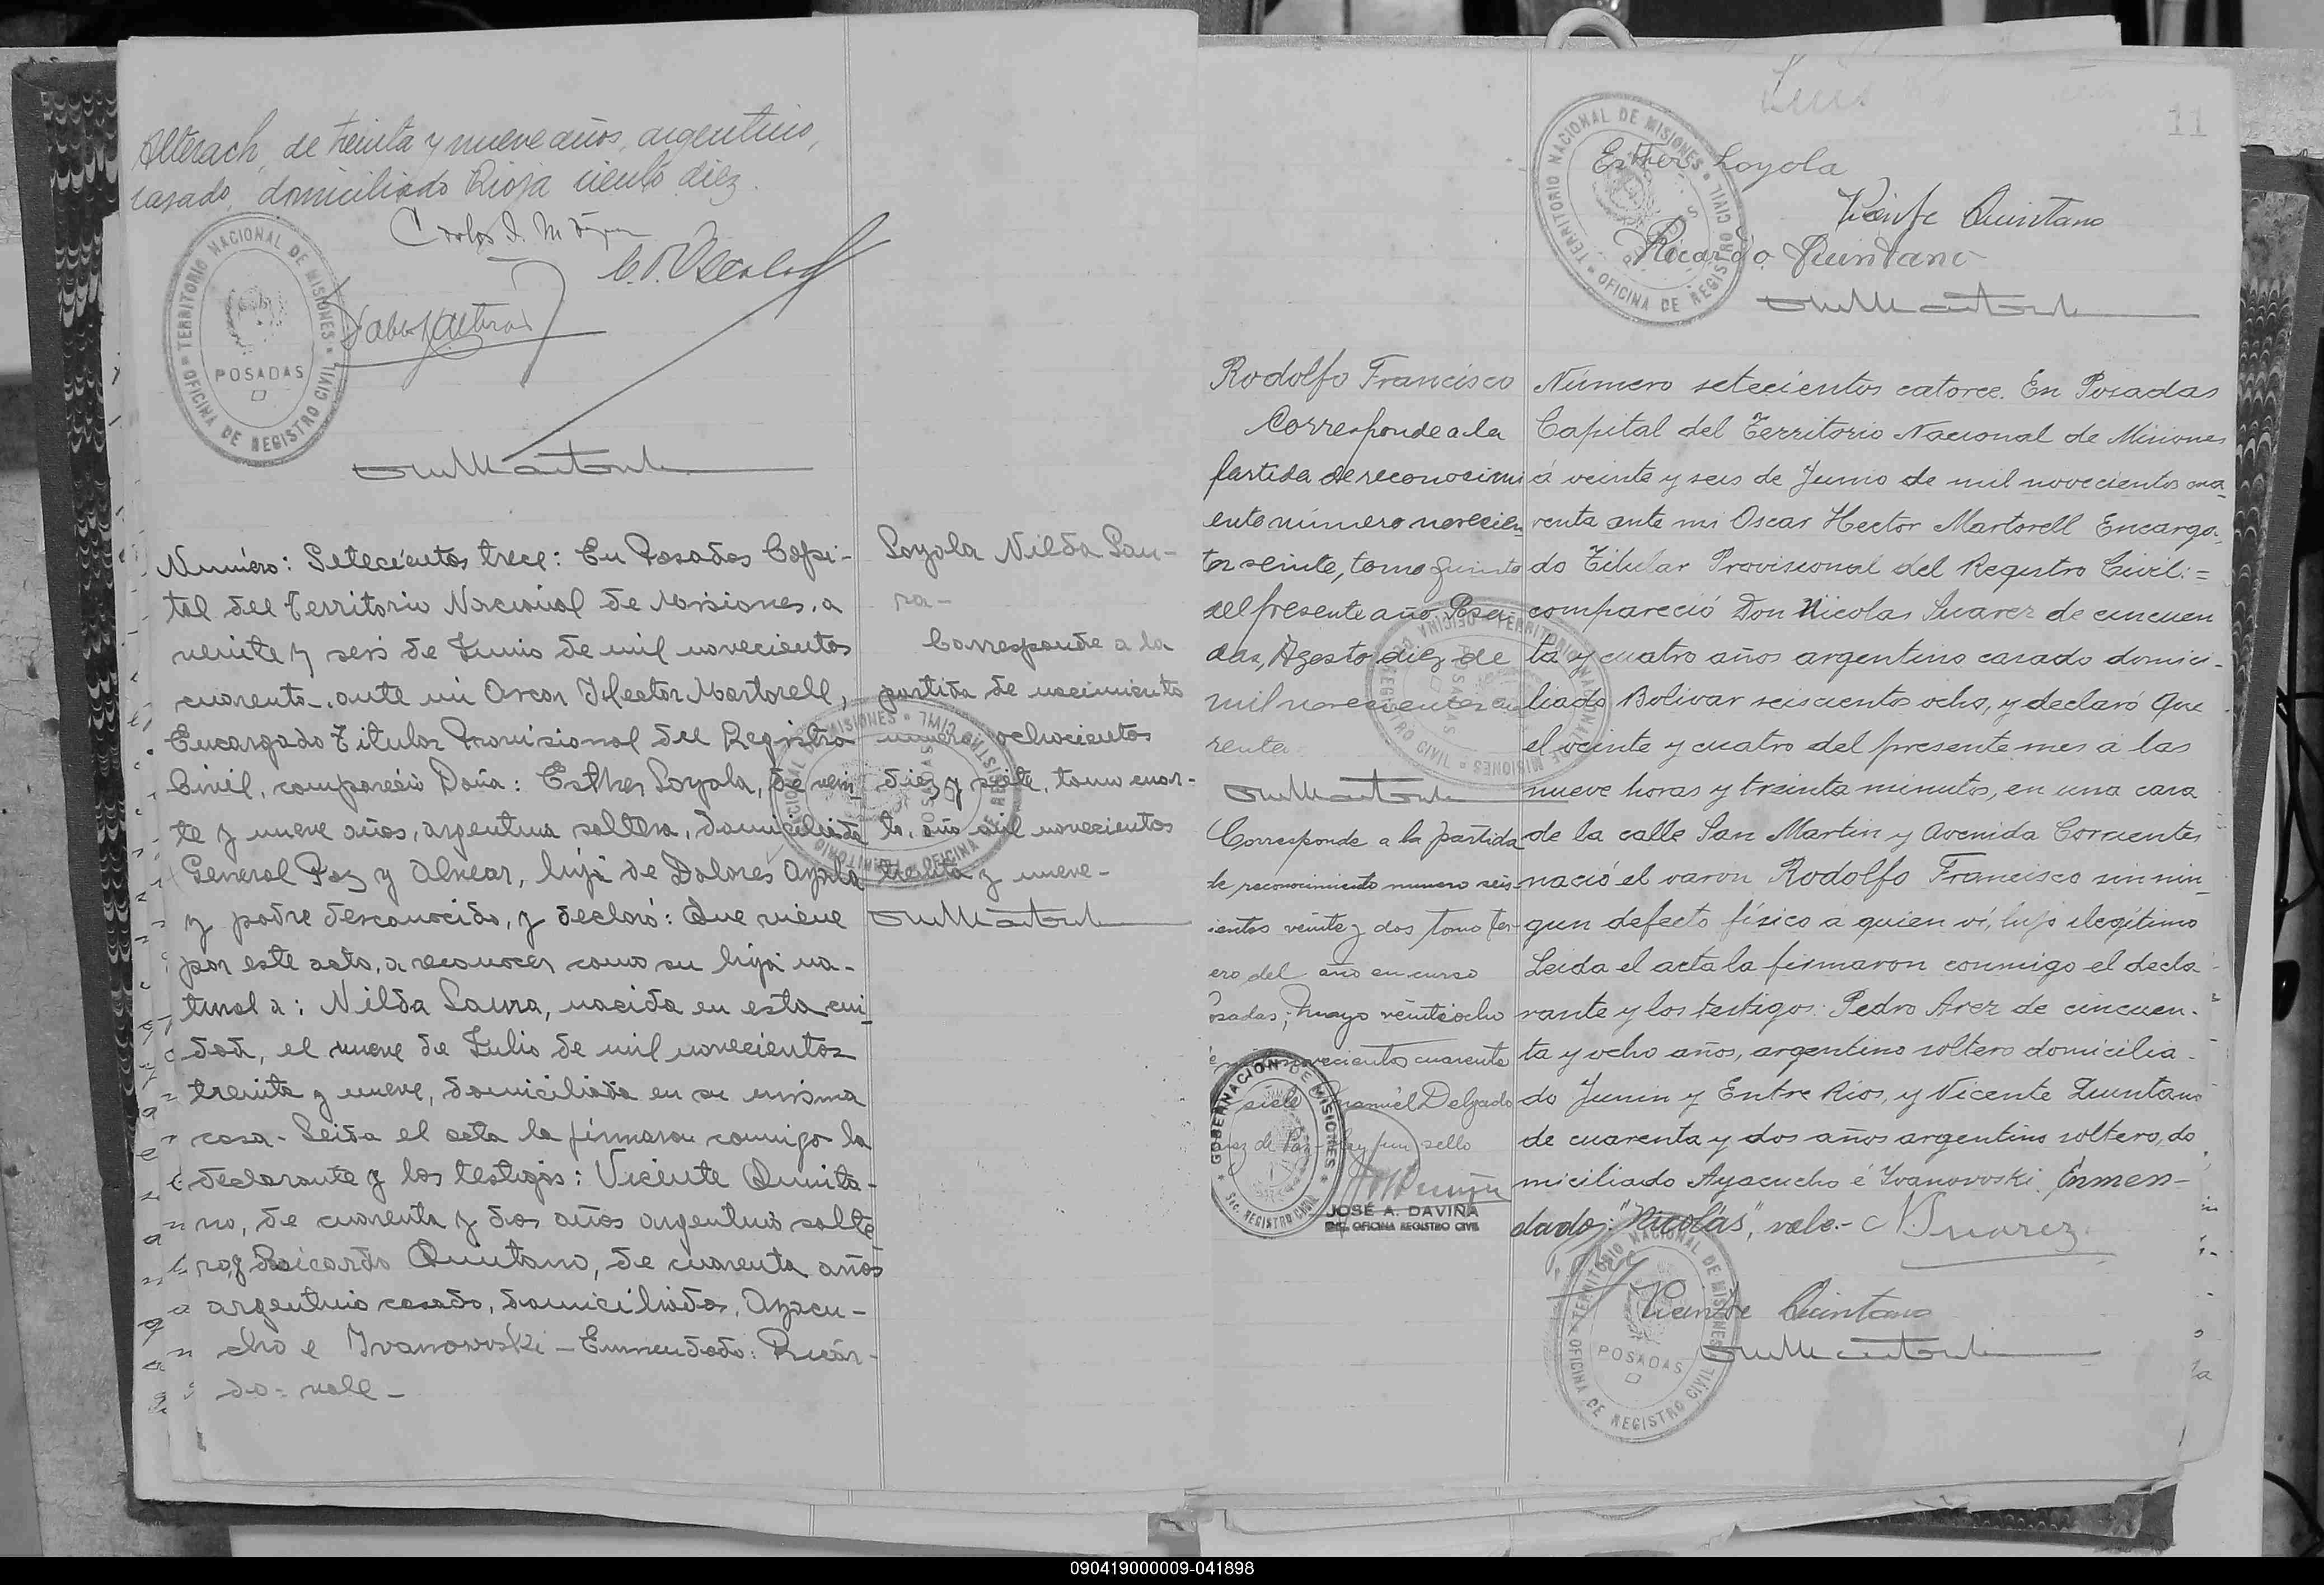 Alterach, de treinta y nueve años, argentino,
casado, domiciliado Rioja ciento diez.
TERRITORIO NACIONAL DE MISIONES
POSADAS
OFICINA DE REGISTRO CIVIL
Número: Setecientos trece: En Posadas Capi-
tal del Territorio Nacional de Misiones, a
veinte y seis de Junio de mil novecientos
cuarenta, ante mi Oscar Hector Martorell,
Encargado Titular Provisional del Registro
Civil, compareció Doña: Esther Loyola, de vein-
te y nueve años, argentina soltera, domiciliada
General Paz y Alvear, hija de Dolores Ayala
y padre desconocido, y declaró: Que viene
por este acto, a reconocer como su hija na-
tural a: Nilda Laura, nacida en esta ciu-
dad, el nueve de Julio de mil novecientos
treinta y nueve, domiciliada en su misma
casa - Leida el acta la firmaron conmigo la
declarante y los testigos: Vicente Quinta-
no, de cuarenta y dos años argentino solte
ro y Ricardo Quintano, de cuarenta años
argentino casado, domiciliados, Ayacu-
cho e Ivanowski - Enmendado: Ricar-
do = vale -
Loyola Nilda Lau-
ra -
Corresponde a la
partida de nacimiento
número ochocientos
diez y siete, tomo cuar-
to, año mil novecientos
treinta y nueve -
TERRITORIO NACIONAL DE MISIONES
POSADAS
OFICINA DE REGISTRO CIVIL
Luis
11
TERRITORIO NACIONAL DE MISIONES
POSADAS
OFICINA DE REGISTRO CIVIL
Esther Loyola
Vicente Quintano
Ricardo Quintano
Rodolfo Francisco
Corresponde a la
partida de reconocimi
ento número novecien
tos veinte, tomo quinto
del presente año. Posa-
das, Agosto diez de
mil novecientos cua
renta
Corresponde a la partida
de reconocimiento numero seis-
cientos veinte y dos tomo ter-
cero del año en curso
Posadas, Mayo veintiocho
novecientos cuarenta
siete Manuel Delgado
Juez de Paz Hay un sello
GOBERNACION DE MISIONES
Sec. REGISTRO CIVIL
JOSÉ A. DAVIÑA
ENC. OFICINA REGISTRO CIVIL
Número setecientos catorce. En Posadas
Capital del Territorio Nacional de Misiones
á veinte y seis de Junio de mil novecientos cua
renta ante mi Oscar Hector Martorell Encarga-
do Titular Provisional del Registro Civil: =
compareció Don Nicolas Suarez de cincuen
ta y cuatro años argentino casado domici-
liado Bolivar seiscientos ocho, y declaró Que
el veinte y cuatro del presente mes a las
nueve horas y treinta minutos, en una casa
de la calle San Martin y Avenida Corrientes
nació el varon Rodolfo Francisco sin nin-
gun defecto físico a quien ví, hijo ilegítimo
Leida el acta la firmaron conmigo el decla
rante y los testigos: Pedro Arez de cincuen-
ta y ocho años, argentino soltero domicilia-
do Junin y Entre Rios, y Vicente Quintano
de cuarenta y dos años argentino soltero, do
miciliado Ayacucho é Ivanovoski. Enmen-
dado: "Nicolás", vale.- N. Suarez
Vicente Quintano
TERRITORIO NACIONAL DE MISIONES
POSADAS
OFICINA DE REGISTRO CIVIL
090419000009-041898